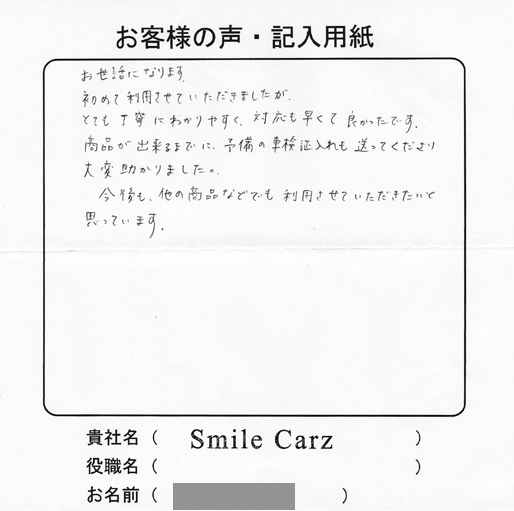 お客様の声・記入用紙
お世話になります。
初めて利用させていただきましたが、
とても丁寧にわかりやすく、対応も早くて良かったです。
商品が出来るまでに、予備の車検証入れも送ってくださり
大変助かりました。
今後も、他の商品などでも利用させていただきたいと
思っています。
貴社名（ Smile Carz ）
役職名（ ）
お名前（ ）